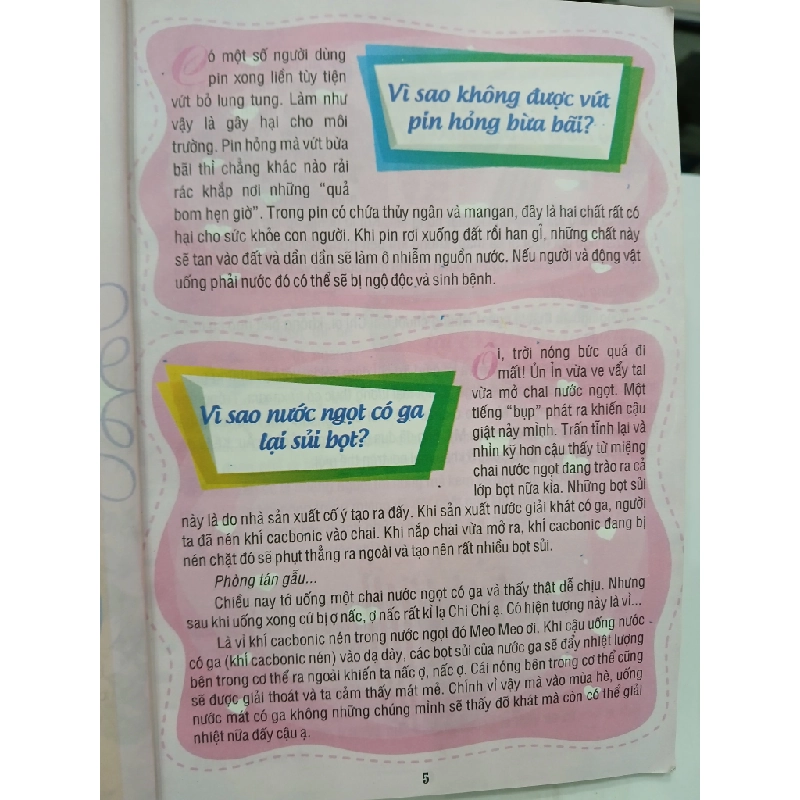 Vì sao không được vứt
pin hỏng bừa bãi?
Có một số người dùng
pin xong liền tùy tiện
vứt bỏ lung tung. Làm như
vậy là gây hại cho môi
trường. Pin hỏng mà vứt bừa
bãi thì chẳng khác nào rải
rác khắp nơi những “quả
bom hẹn giờ”. Trong pin có chứa thủy ngân và mangan, đây là hai chất rất có
hại cho sức khỏe con người. Khi pin rơi xuống đất rồi han gỉ, những chất này
sẽ tan vào đất và dần dần sẽ làm ô nhiễm nguồn nước. Nếu người và động vật
uống phải nước đó có thể sẽ bị ngộ độc và sinh bệnh.
Vì sao nước ngọt có ga
lại sủi bọt?
Ôi, trời nóng bức quá đi
mất! Ủn Ỉn vừa ve vẩy tai
vừa mở chai nước ngọt. Một
tiếng “bụp” phát ra khiến cậu
giật nảy mình. Trấn tĩnh lại và
nhìn kỹ hơn cậu thấy từ miệng
chai nước ngọt đang trào ra cả
lớp bọt nữa kìa. Những bọt sủi
này là do nhà sản xuất cố ý tạo ra đấy. Khi sản xuất nước giải khát có ga, người
ta đã nén khí cacbonic vào chai. Khi nắp chai vừa mở ra, khí cacbonic đang bị
nén chặt đó sẽ phụt thẳng ra ngoài và tạo nên rất nhiều bọt sủi.
Phòng tán gẫu...
Chiều nay tớ uống một chai nước ngọt có ga và thấy thật dễ chịu. Nhưng
sau khi uống xong cứ bị ợ nấc, ợ nấc rất kì lạ Chi Chi ạ. Có hiện tượng này là vì...
Là vì khí cacbonic nén trong nước ngọt đó Meo Meo ơi. Khi cậu uống nước
có ga (khí cacbonic nén) vào dạ dày, các bọt sủi của nước ga sẽ đẩy nhiệt lượng
bên trong cơ thể ra ngoài khiến ta nấc ợ, nấc ợ. Cái nóng bên trong cơ thể cũng
sẽ được giải thoát và ta cảm thấy mát mẻ. Chính vì vậy mà vào mùa hè, uống
nước mát có ga không những chúng mình sẽ thấy đỡ khát mà còn có thể giải
nhiệt nữa đấy cậu ạ.
5